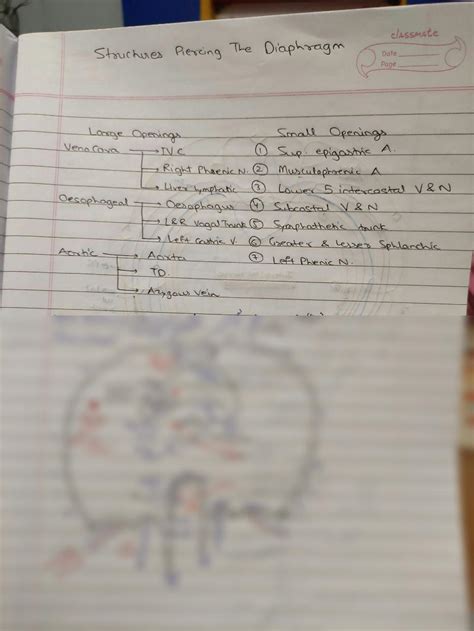 classmate
Date
Page
Structures Piercing The Diaphragm
Large Openings
Small Openings
Vena Cava → IVC
→ Right Phrenic N.
→ Liver Lymphatic
Oesophageal → Oesophagus
→ L&R Vagal Trunk
→ Left Gastric V.
Aortic → Aorta
→ TD.
→ Azygous Vein
① Sup. epigastric A.
② Musculophrenic A
③ Lower 5 intercostal V & N
④ Subcostal V & N
⑤ Symphathetic trunk
⑥ Greater & Lesser Sphlanchic
⑦ Left Phenic N.